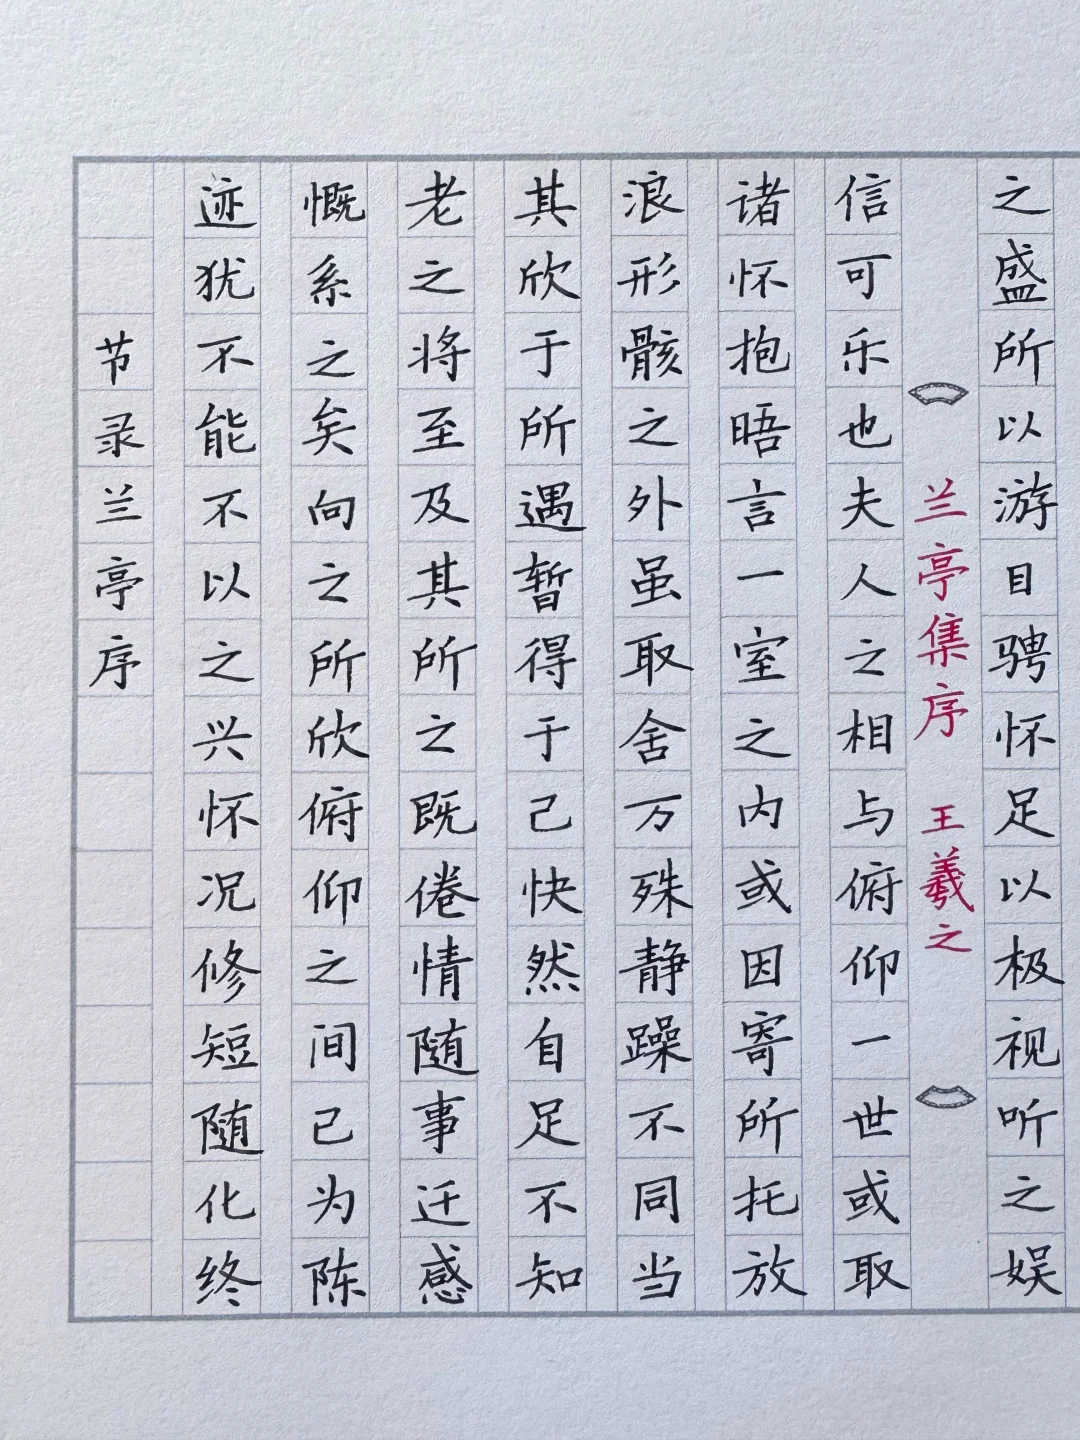 之盛所以游目骋怀足以极视听之娱
兰亭集序 王羲之
信可乐也夫人之相与俯仰一世或取
诸怀抱晤言一室之内或因寄所托放
浪形骸之外虽取舍万殊静躁不同当
其欣于所遇暂得于己快然自足不知
老之将至及其所之既倦情随事迁感
慨系之矣向之所欣俯仰之间已为陈
迹犹不能不以之兴怀况修短随化终
节录兰亭序